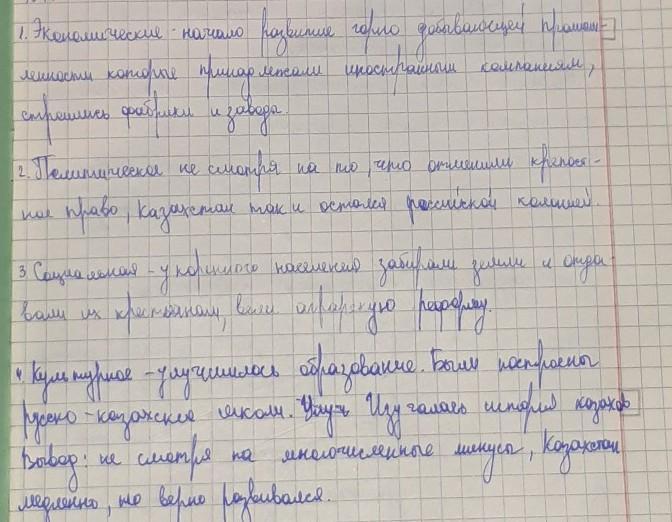 1. Экономические - начало развитие горно добывающей промыш-
ленности которые принадлежали иностранным компаниям,
строились фабрики и завода.
2. Политическая не смотря на то, что отменили крепост-
ное право, Казахстан так и остался российской колонией.
3 Социальная - у коренного населения забирали земли и отда
вали их крестьянам, вели аграрную реформу.
4. Культурное - улучшилось образование. Были построены
русско-казахские школы. Изучалась история казахов
Вывод: не смотря на многочисленные минусы, Казахстан
медленно, но верно развивался.